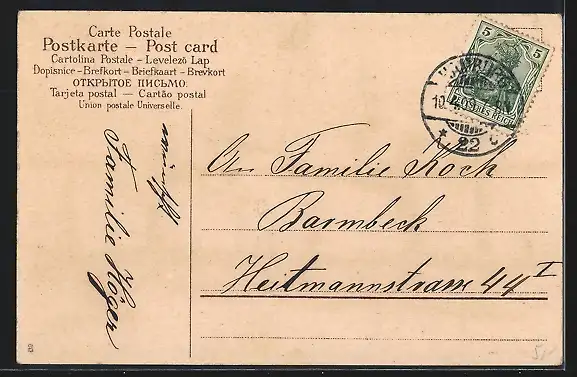 Carte Postale
Postkarte — Post card
Cartolina Postale - Levelező Lap
Dopisnice - Brefkort - Briefkaart - Brevkort
ОТКРЫТОЕ ПИСЬМО.
Tarjeta postal — Cartão postal
Union postale Universelle.
wünscht
Familie Höger
An Familie Koch
Barmbeck
Heitmannstrasse 44 I
5 5
DEUTSCHES REICH
HAMBURG
10.
* 22 c
5,-